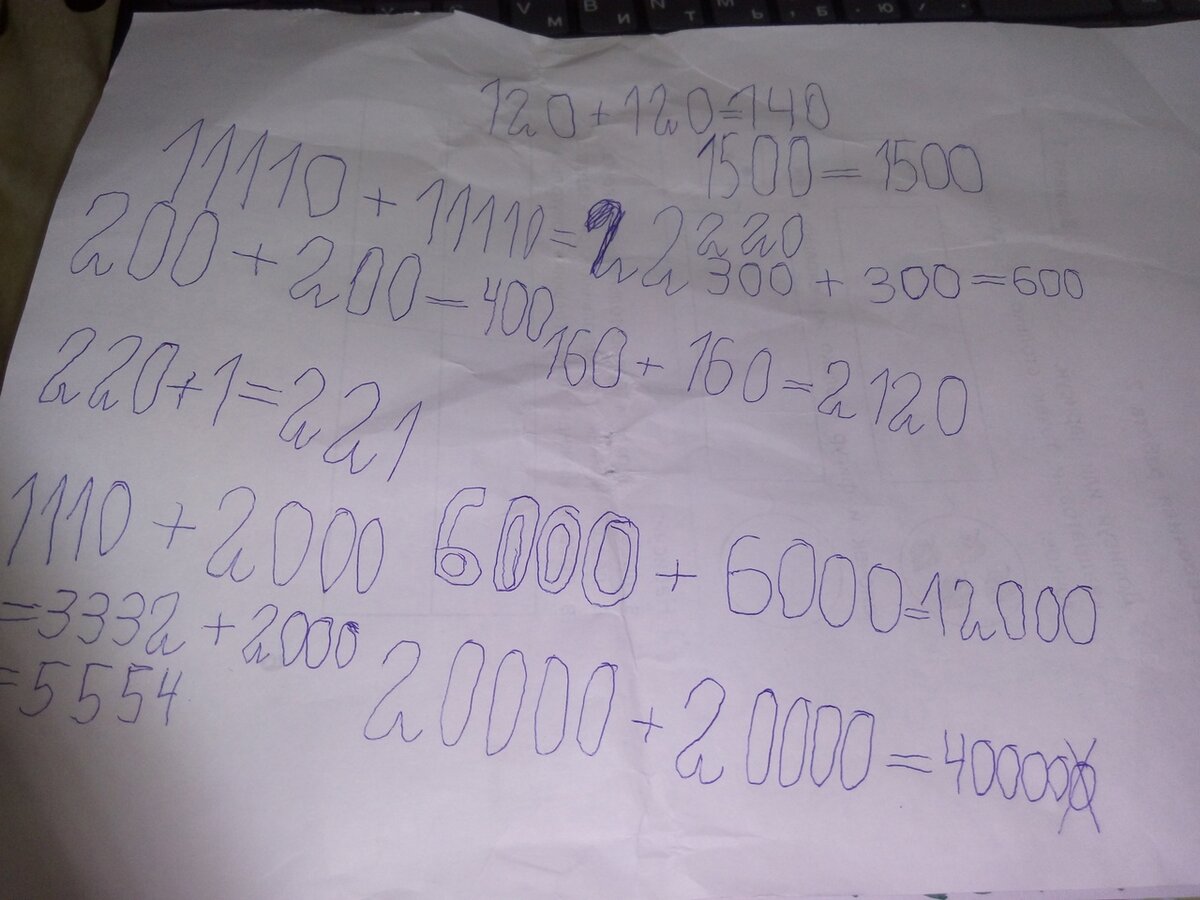 120+120=140
1500=1500
11110+11110=22220
200+200=400
300+300=600
160+160=2120
220+1=221
1110+2000
=3332+2000
=5554
6000+6000=12000
20000+20000=40000